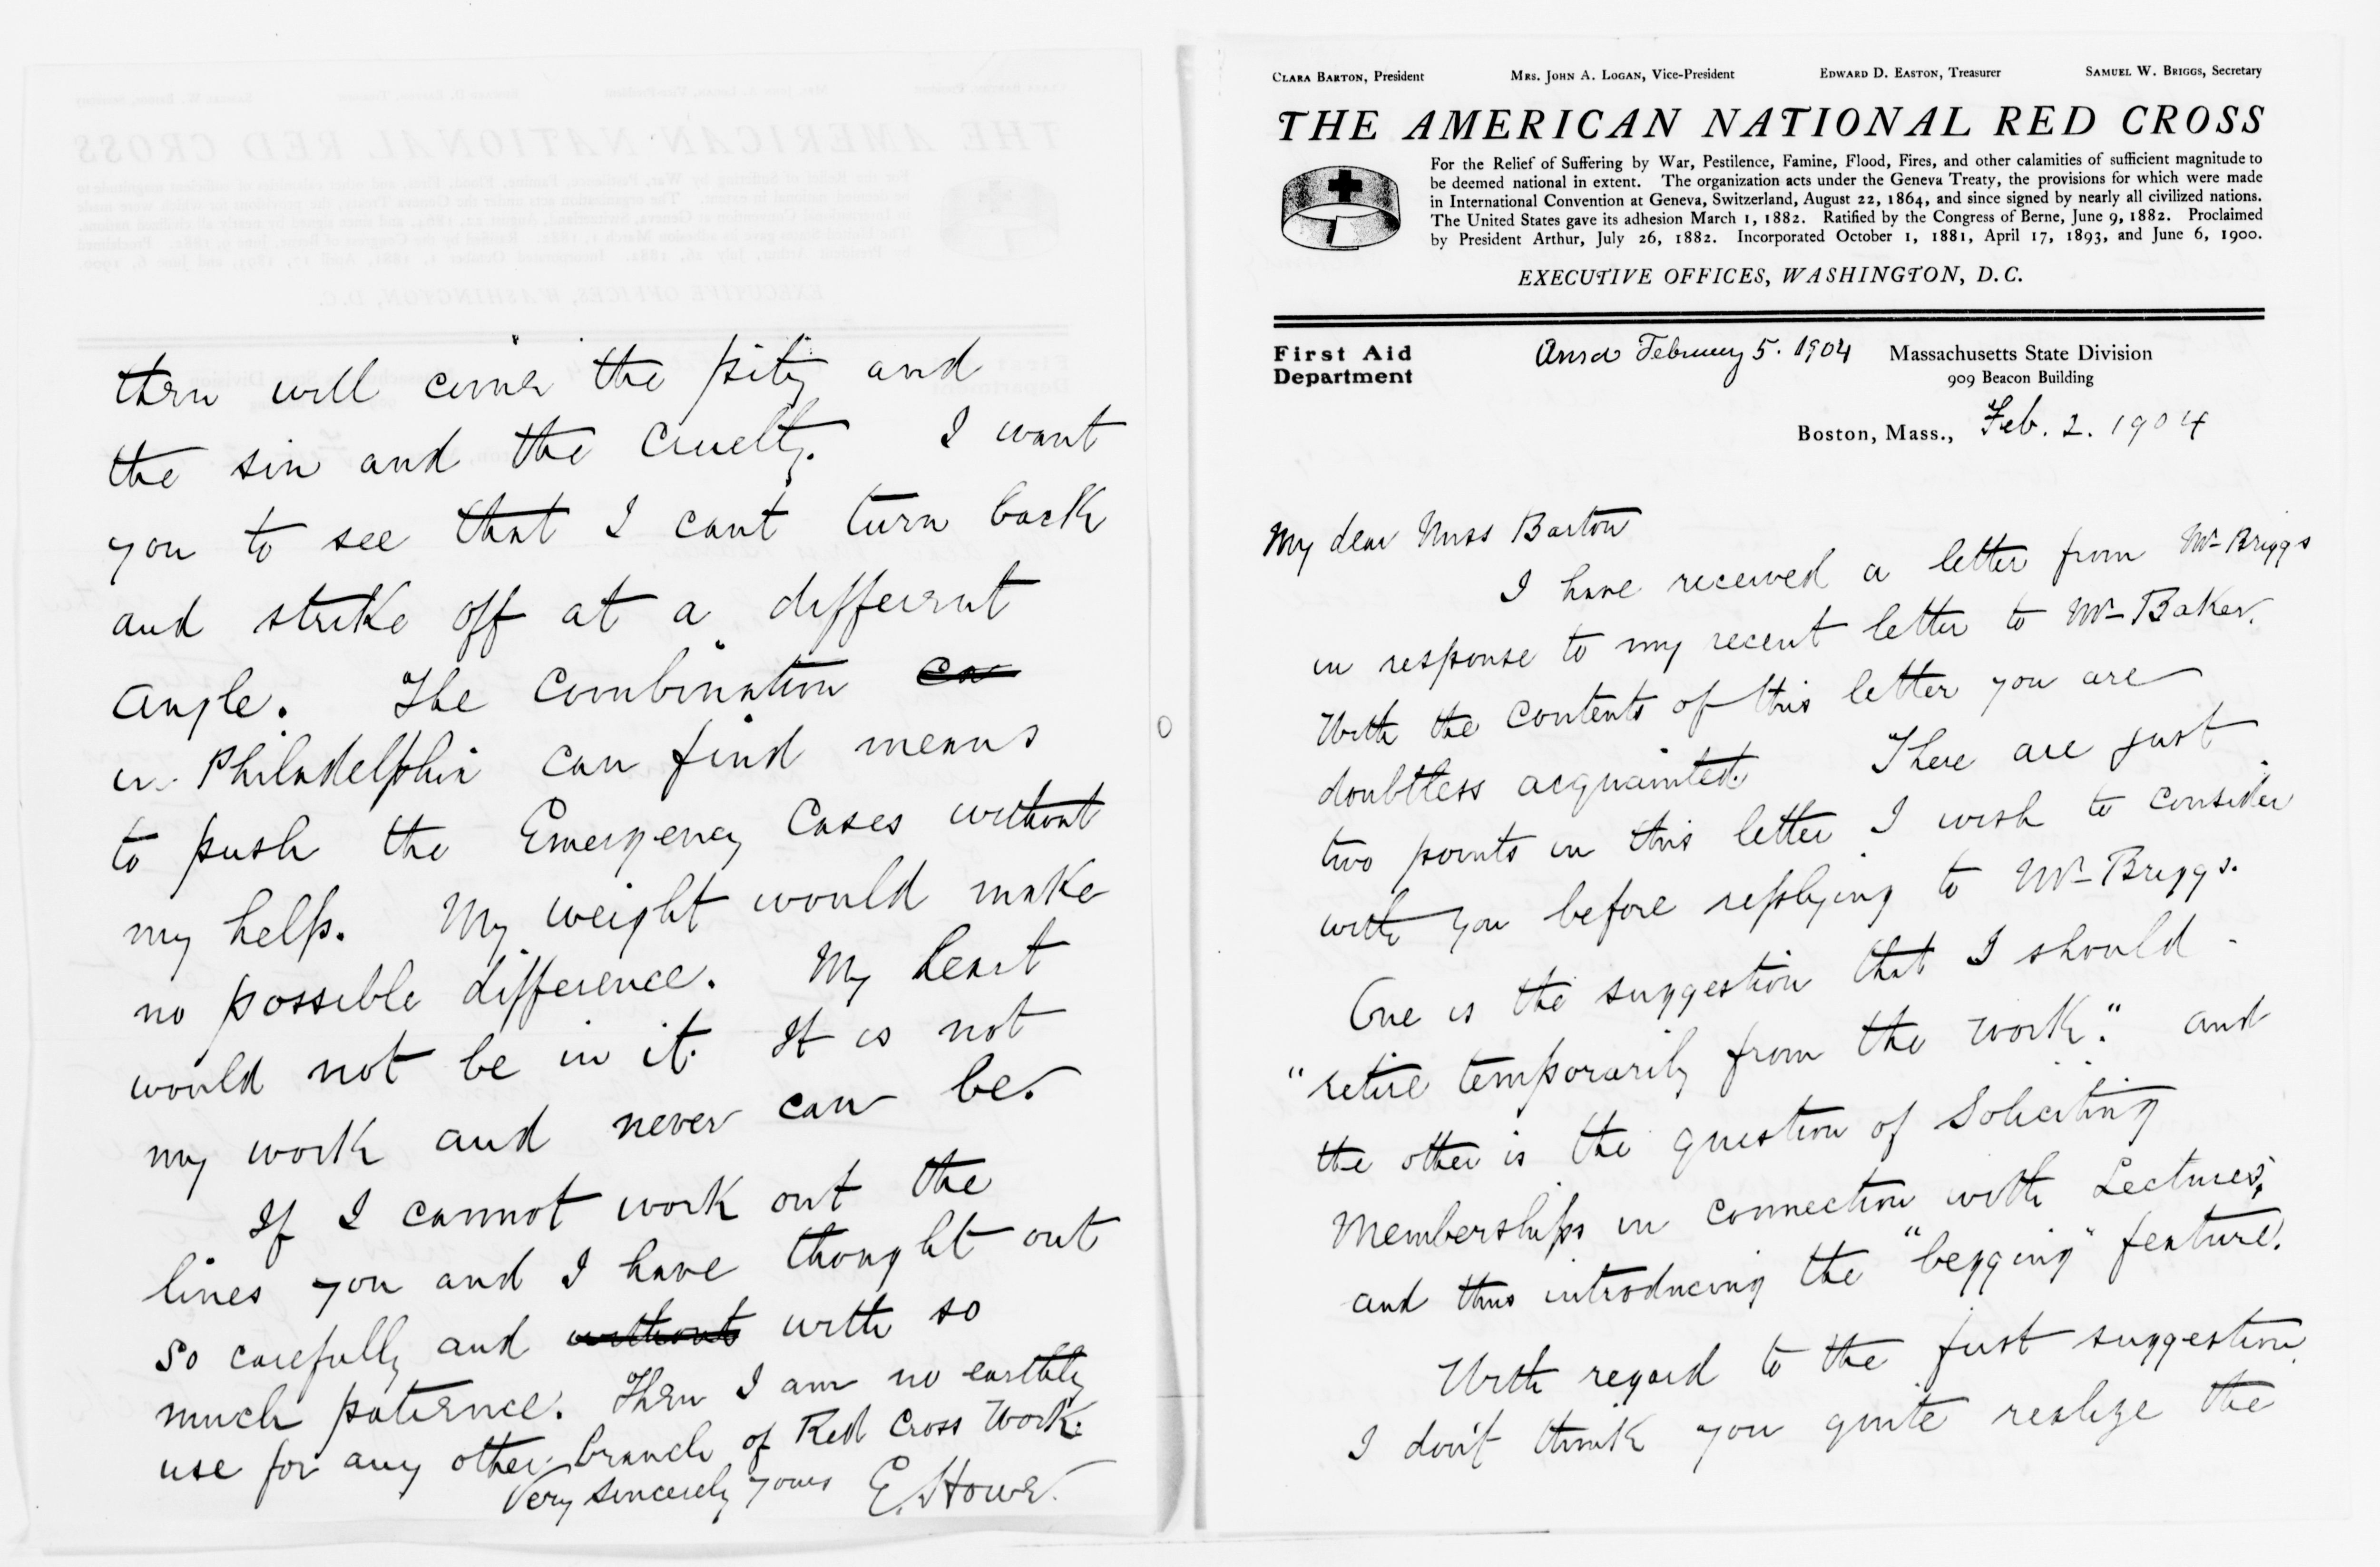 then will come the pity and
the sin and the cruelty. I want
you to see that I cant turn back
and strike off at a different
angle. The combination
in Philadelphia can find means
to push the Emergency Cases without
my help. My weight would make
no possible difference. My heart
would not be in it. It is not
my work and never can be.
If I cannot work out the
lines you and I have thought out
so carefully and without with so
much patience. Then I am no earthly
use for any other branch of Red Cross Work.
Very sincerely yours E. Howe.
CLARA BARTON, President MRS. JOHN A. LOGAN, Vice-President EDWARD D. EASTON, Treasurer SAMUEL W. BRIGGS, Secretary
THE AMERICAN NATIONAL RED CROSS
For the Relief of Suffering by War, Pestilence, Famine, Flood, Fires, and other calamities of sufficient magnitude to
be deemed national in extent. The organization acts under the Geneva Treaty, the provisions for which were made
in International Convention at Geneva, Switzerland, August 22, 1864, and since signed by nearly all civilized nations.
The United States gave its adhesion March 1, 1882. Ratified by the Congress of Berne, June 9, 1882. Proclaimed
by President Arthur, July 26, 1882. Incorporated October 1, 1881, April 17, 1893, and June 6, 1900.
EXECUTIVE OFFICES, WASHINGTON, D.C.
First Aid
Department
Ansd February 5. 1904
Massachusetts State Division
909 Beacon Building
Boston, Mass., Feb. 2. 1904
My dear Miss Barton
I have received a letter from Mr Briggs
in response to my recent letter to Mr Baker.
With the contents of this letter you are
doubtless acquainted. There are just
two points in this letter I wish to consider
with you before replying to Mr Briggs.
One is the suggestion that I should
"retire temporarily from the work." and
the other is the question of Soliciting
Memberships in connection with Lectures,
and thus introducing the "begging" feature.
With regard to the first suggestion
I don't think you quite realize the